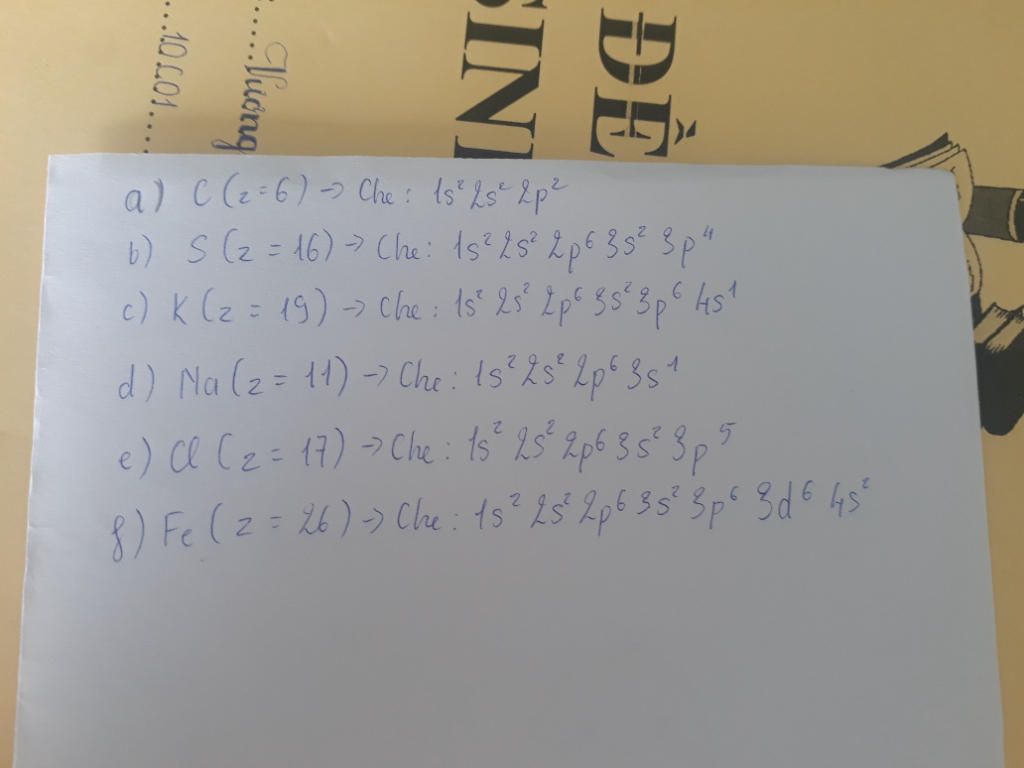 ĐỀ
SIN
Vương
10C01
a) C (z=6) → Che: 1s² 2s² 2p²
b) S (z = 16) → Che: 1s² 2s² 2p⁶ 3s² 3p⁴
c) K (z = 19) → Che: 1s² 2s² 2p⁶ 3s² 3p⁶ 4s¹
d) Na (z = 11) → Che: 1s² 2s² 2p⁶ 3s¹
e) Cl (z = 17) → Che: 1s² 2s² 2p⁶ 3s² 3p⁵
f) Fe (z = 26) → Che: 1s² 2s² 2p⁶ 3s² 3p⁶ 3d⁶ 4s²